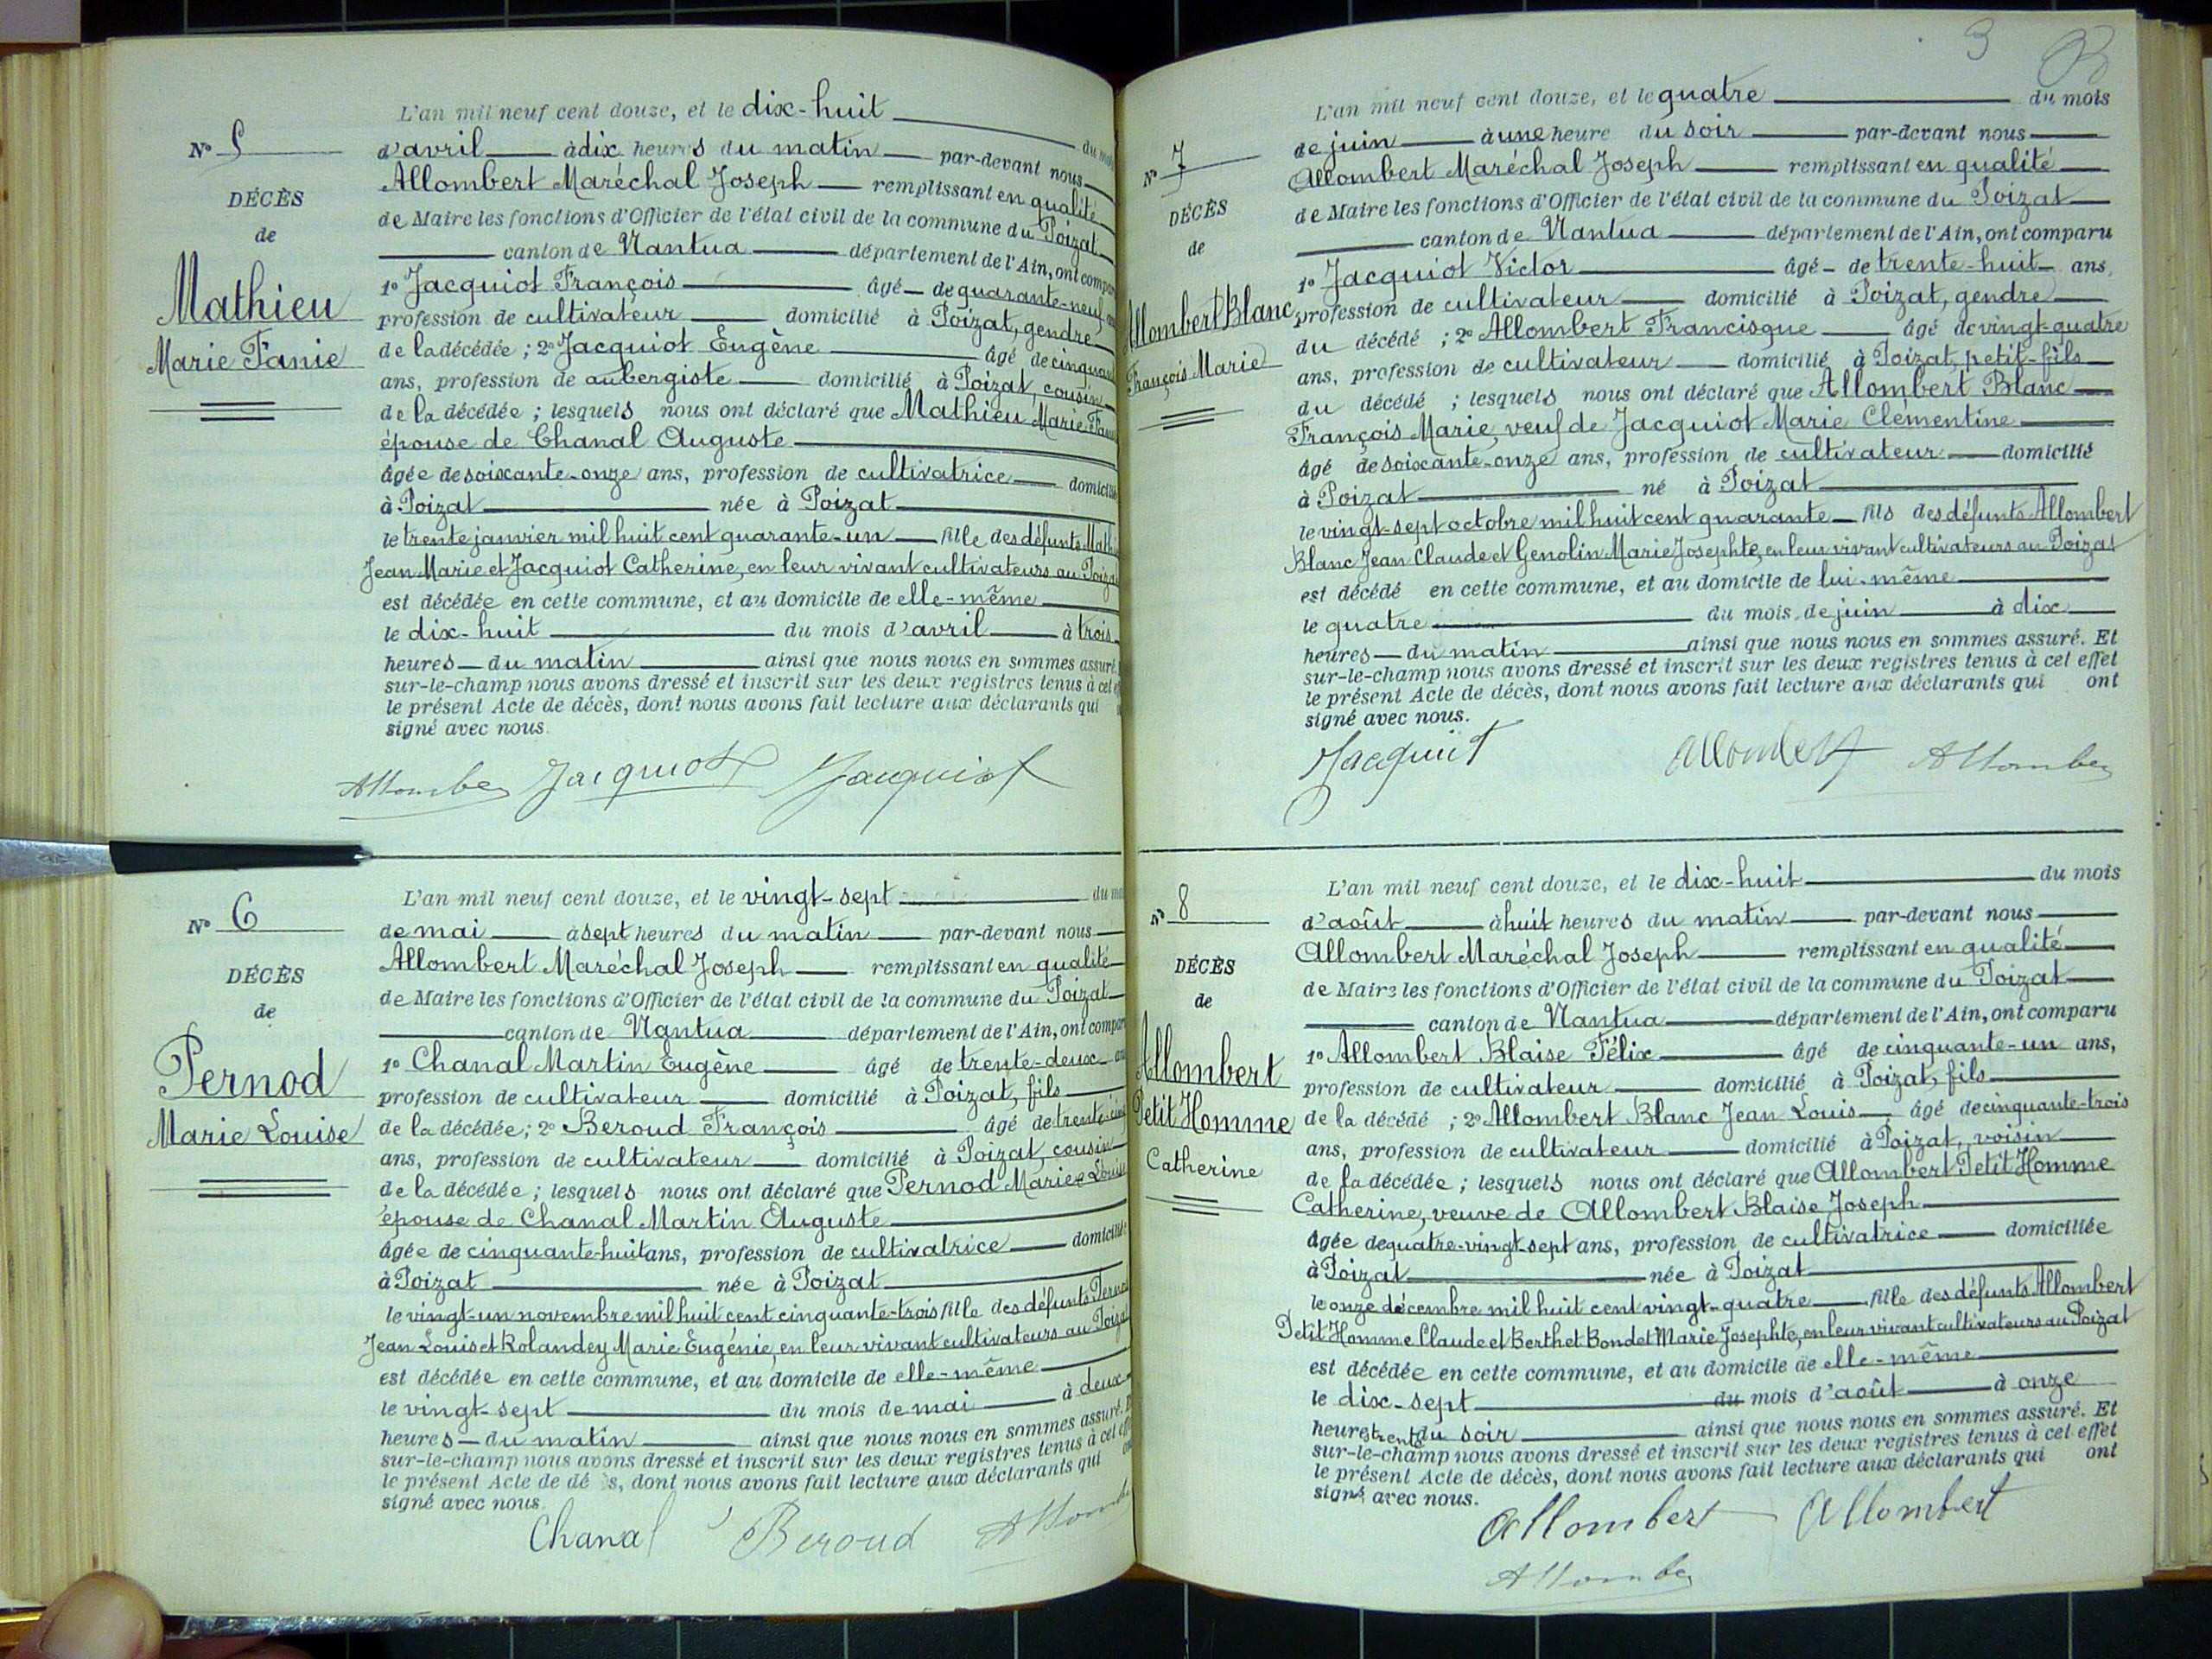 L'an mil neuf cent douze, et le dix-huit du mois
N° 5
d'avril à dix heures du matin par-devant nous
Allombert Maréchal Joseph remplissant en qualité
DÉCÈS
de Maire les fonctions d'Officier de l'état civil de la commune du Poizat
de
canton de Nantua département de l'Ain, ont compar
Mathieu
1° Jacquiot François âgé de quarante-neuf
profession de cultivateur domicilié à Poizat, gendre
Marie Fanie
de la décédée ; 2° Jacquiot Eugène âgé de cinquan
ans, profession de aubergiste domicilié à Poizat, cousin
de la décédée ; lesquels nous ont déclaré que Mathieu Marie Fan
épouse de Chanal Auguste
âgée de soixante-onze ans, profession de cultivatrice domicilié
à Poizat née à Poizat
le trente janvier mil huit cent quarante-un fille des défunts Math
Jean Marie et Jacquiot Catherine, en leur vivant cultivateurs au Poiza
est décédée en cette commune, et au domicile de elle-même
le dix-huit du mois d'avril à trois
heures du matin ainsi que nous nous en sommes assuré.
sur-le-champ nous avons dressé et inscrit sur les deux registres tenus à cet
le présent Acte de décès, dont nous avons fait lecture aux déclarants qui
signé avec nous.
Allomber Jacquiot Jacquiot
L'an mil neuf cent douze, et le vingt-sept du m
N° 6
de mai à sept heures du matin par-devant nous
Allombert Maréchal Joseph remplissant en qualité
DÉCÈS
de Maire les fonctions d'Officier de l'état civil de la commune du Poizat
de
canton de Nantua département de l'Ain, ont compar
Pernod
1° Chanal Martin Eugène âgé de trente-deux
profession de cultivateur domicilié à Poizat, fils
Marie Louise
de la décédée ; 2° Beroud François âgé de trente-cinq
ans, profession de cultivateur domicilié à Poizat, cousin
de la décédée ; lesquels nous ont déclaré que Pernod Marie Louise
épouse de Chanal Martin Auguste
âgée de cinquante-huit ans, profession de cultivatrice domicilié
à Poizat née à Poizat
le vingt-un novembre mil huit cent cinquante-trois fille des défunts Perno
Jean Louis et Rolandey Marie Eugénie, en leur vivant cultivateurs au Poiza
est décédée en cette commune, et au domicile de elle-même
le vingt-sept du mois de mai à deux
heures du matin ainsi que nous nous en sommes assuré.
sur-le-champ nous avons dressé et inscrit sur les deux registres tenus à cet eff
le présent Acte de dé s, dont nous avons fait lecture aux déclarants qui
signé avec nous.
Chanal Beroud Allomb
3
L'an mil neuf cent douze, et le quatre du mois
N° 7
de juin à une heure du soir par-devant nous
Allombert Maréchal Joseph remplissant en qualité
DÉCÈS
de Maire les fonctions d'Officier de l'état civil de la commune du Poizat
de
canton de Nantua département de l'Ain, ont comparu
1° Jacquiot Victor âgé de trente-huit ans,
Allombert Blanc
profession de cultivateur domicilié à Poizat, gendre
du décédé ; 2° Allombert Francisque âgé de vingt-quatre
François Marie
ans, profession de cultivateur domicilié à Poizat, petit-fils
du décédé ; lesquels nous ont déclaré que Allombert Blanc
François Marie, veuf de Jacquiot Marie Clementine
âgé de soixante-onze ans, profession de cultivateur domicilié
à Poizat né à Poizat
le vingt-sept octobre mil huit cent quarante fils des défunts Allombert
Blanc Jean Claude et Genolin Marie Josephte, en leur vivant cultivateurs au Poizat
est décédé en cette commune, et au domicile de lui-même
le quatre du mois de juin à dix
heures du matin ainsi que nous nous en sommes assuré. Et
sur-le-champ nous avons dressé et inscrit sur les deux registres tenus à cet effet
le présent Acte de décès, dont nous avons fait lecture aux déclarants qui ont
signé avec nous.
Jacquiot Allombert Allomber
L'an mil neuf cent douze, et le dix-huit du mois
N° 8
d'août à huit heures du matin par-devant nous
Allombert Maréchal Joseph remplissant en qualité
DÉCÈS
de Maire les fonctions d'Officier de l'état civil de la commune du Poizat
de
canton de Nantua département de l'Ain, ont comparu
Allombert
1° Allombert Blaise Félix âgé de cinquante-un ans,
profession de cultivateur domicilié à Poizat, fils
Petit Homme
de la décédé ; 2° Allombert Blanc Jean Louis âgé de cinquante-trois
ans, profession de cultivateur domicilié à Poizat, voisin
Catherine
de la décédée ; lesquels nous ont déclaré que Allombert Petit Homme
Catherine, veuve de Allombert Blaise Joseph
âgée de quatre-vingt-sept ans, profession de cultivatrice domiciliée
à Poizat née à Poizat
le onze décembre mil huit cent vingt-quatre fille des défunts Allombert
Petit Homme Claude et Berthet Bondet Marie Josephte, en leur vivant cultivateurs au Poizat
est décédée en cette commune, et au domicile de elle-même
le dix-sept du mois d'août à onze
heures trente du soir ainsi que nous nous en sommes assuré. Et
sur-le-champ nous avons dressé et inscrit sur les deux registres tenus à cet effet
le présent Acte de décès, dont nous avons fait lecture aux déclarants qui ont
signé avec nous.
Allombert Allombert
Allomber